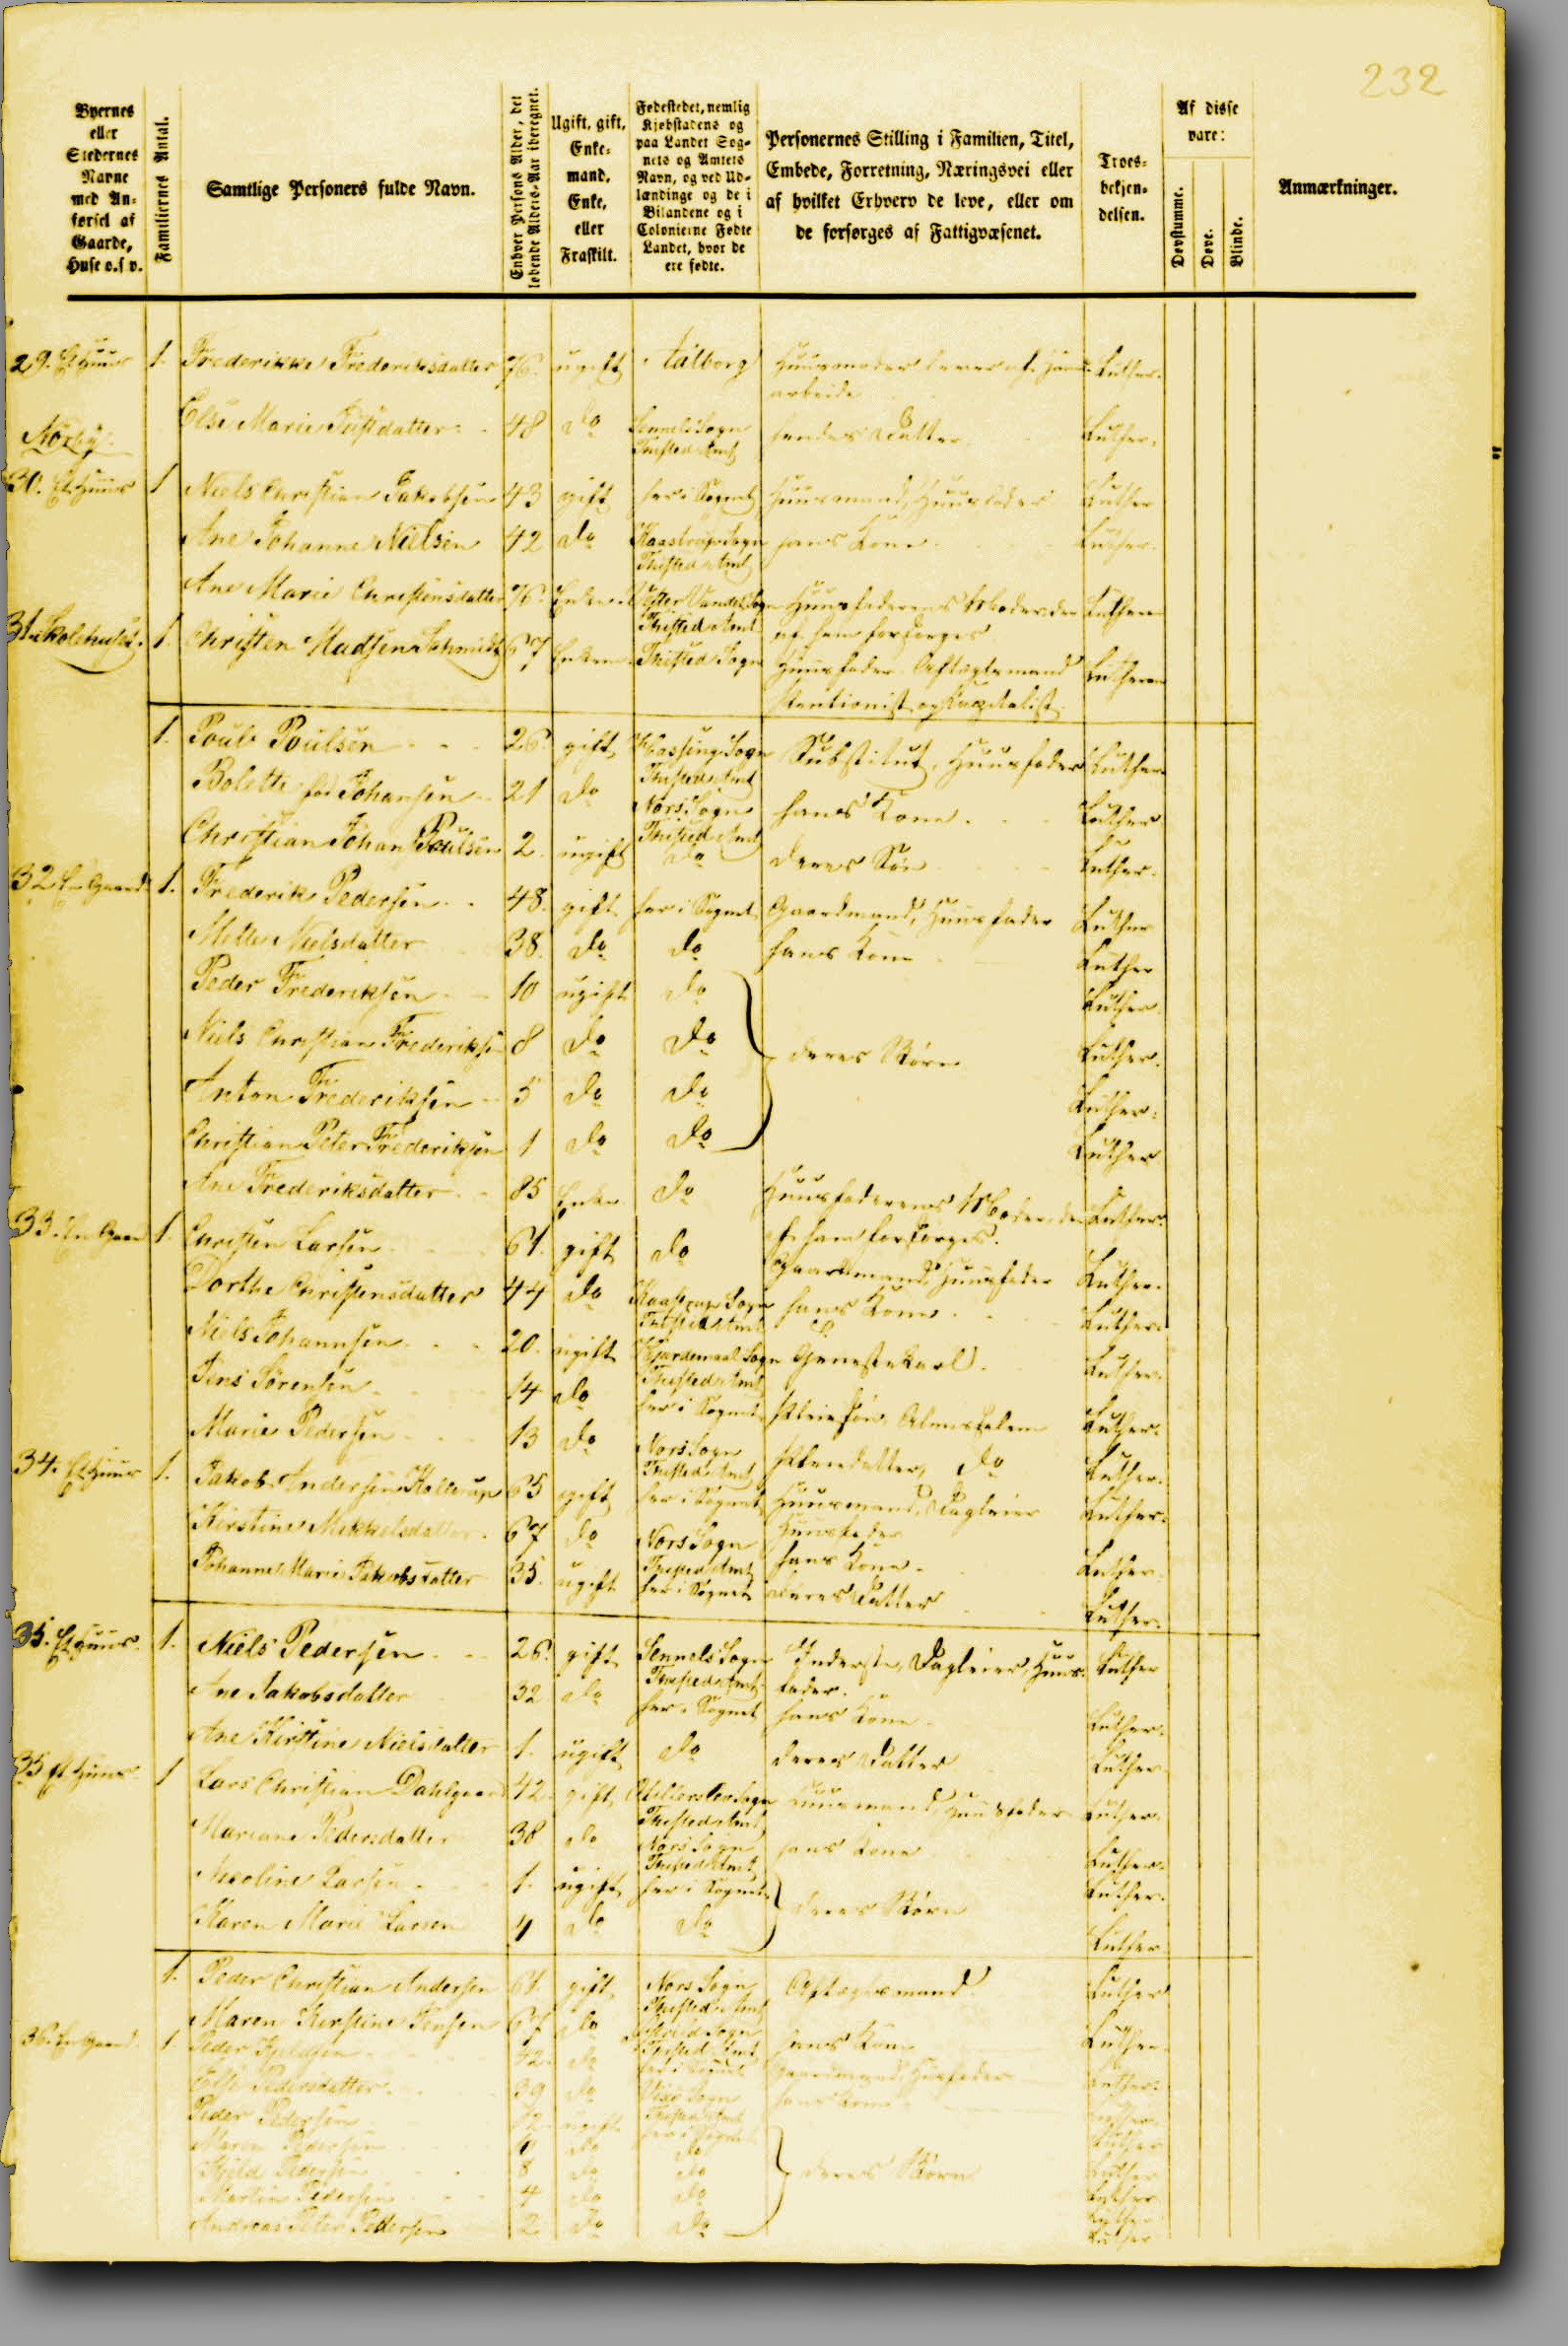 232
Byernes eller Stedernes Navne med Anførsel af Gaarde, Huse o.s v.
Familiernes Antal.
Samtlige Personers fulde Navn.
Enhver Persons Alder, det løbende Alders-Aar iberegnet.
Ugift, gift, Enkemand, Enke, eller Fraskilt.
Fødestedet, nemlig Kjøbstadens og paa Landet Sognets og Amtets Navn, og ved Udlændinge og de i Bilandene og i Colonierne Fødte Landet, hvor de ere fødte.
Personernes Stilling i Familien, Titel, Embede, Forretning, Næringsvei eller af hvilket Erhverv de leve, eller om de forsørges af Fattigvæsenet.
Troesbekjendelsen.
Af disse vare:
Døvstumme.
Døve.
Blinde.
Anmærkninger.
29. Et Huus 1. Frederikke Frederiksdatter 76. ugift Aalborg Huusmoder lever af Haand- Luther.
arbeide
Else Marie Justdatter 48 do Sennels Sogn Thisted Amt hendes Datter Luther.
Nørby
30. Et Huus 1 Niels Christian Jakobsen 43 gift her i Sognet Huusmand, Huusfader Luther
Ane Johanne Nielsen 42 do Kaastrup Sogn Thisted Amt hans Kone Luther.
Ane Marie Christensdatter 76. Enke Vester Vandet Sogn Thisted Amt Huusfaderens Moder der Luther
af ham forsørges
31. Skolehuset. 1. Christen Madsen Schmidt 67 Enkem. Thisted Sogn Huusfader Aftægtsmand Luther
Pentionist og Kapitalist
1. Poul Poulsen 26 gift Hassing Sogn Thisted Amt Substitut, Huusfader Luther
Bolette fød Johansen 21 do Nors Sogn Thisted Amt hans Kone Luther
Christian Johan Poulsen 2. ugift do deres Søn Luther.
32 En Gaard 1. Frederik Pedersen 48. gift her i Sognet Gaardmand, Huusfader Luther
Mette Nielsdatter 38. do do hans Kone Luther
Peder Frederiksen 10 ugift do Luther.
Niels Christian Frederiksen 8 do do deres Børn Luther.
Anton Frederiksen 5 do do Luther.
Christian Peter Frederiksen 1 do do Luther
Ane Frederiksdatter 85 Enke do Huusfaderens Moder der Luther.
af ham forsørges.
33. En Gaard 1. Christen Larsen 61. gift do Gaardmand Huusfader Luther.
Dorthe Christensdatter 44 do Kaastrup Sogn Thisted Amt hans Kone Luther.
Niels Johannsen 20. ugift Hjardemaal Sogn Thisted Amt Tjenestekarl Luther.
Jens Sørensen 14 do her i Sognet Pleiesøn, Almisselem Luther.
Marie Pedersen 13 do Nors Sogn Thisted Amt Pleiedatter, do Luther.
34. Et Huus 1. Jakob Andersen Kallerup 65 gift her i Sognet Huusmand, Dagleier Luther.
Huusfader
Kirstine Mikkelsdatter 67 do Nors Sogn Thisted Amt hans Kone Luther.
Johanne Marie Jakobsdatter 35. ugift her i Sognet deres Datter Luther.
35. Et Huus. 1. Niels Pedersen 26. gift Sennels Sogn Thisted Amt Inderste, Dagleier, Huus- Luther
fader.
Ane Jakobsdatter 32 do her i Sognet hans Kone Luther.
Ane Kirstine Nielsdatter 1. ugift do deres Datter Luther.
35 Et Huus 1 Lars Christian Dahlgaard 42. gift Hillerslev Sogn Thisted Amt Huusmand Huusfader Luther.
Mariane Pedersdatter 38 do Nors Sogn Thisted Amt hans Kone Luther.
Nicoline Larsen 1. ugift her i Sognet deres Børn Luther.
Karen Marie Larsen 4 do do Luther
1. Peder Christian Andersen 61. gift Nors Sogn Thisted Amt Aftægtsmand Luther
Maren Kirstine Jensen 67 do Sogn Thisted Amt hans Kone Luther.
36. En Gaard 1. Peder Kjeldsen 42. do her i Sognet Gaardmand, Huusfader Luther.
Else Pedersdatter 39 do Sogn Thisted Amt hans Kone Luther
Peder Pedersen 12. ugift her i Sognet Luther
Maren Pedersen do do Luther
Kjeld Pedersen 8 do do deres Børn Luther
Martin Pedersen 4 do do Luther
Andreas Peter Pedersen 2 do do Luther